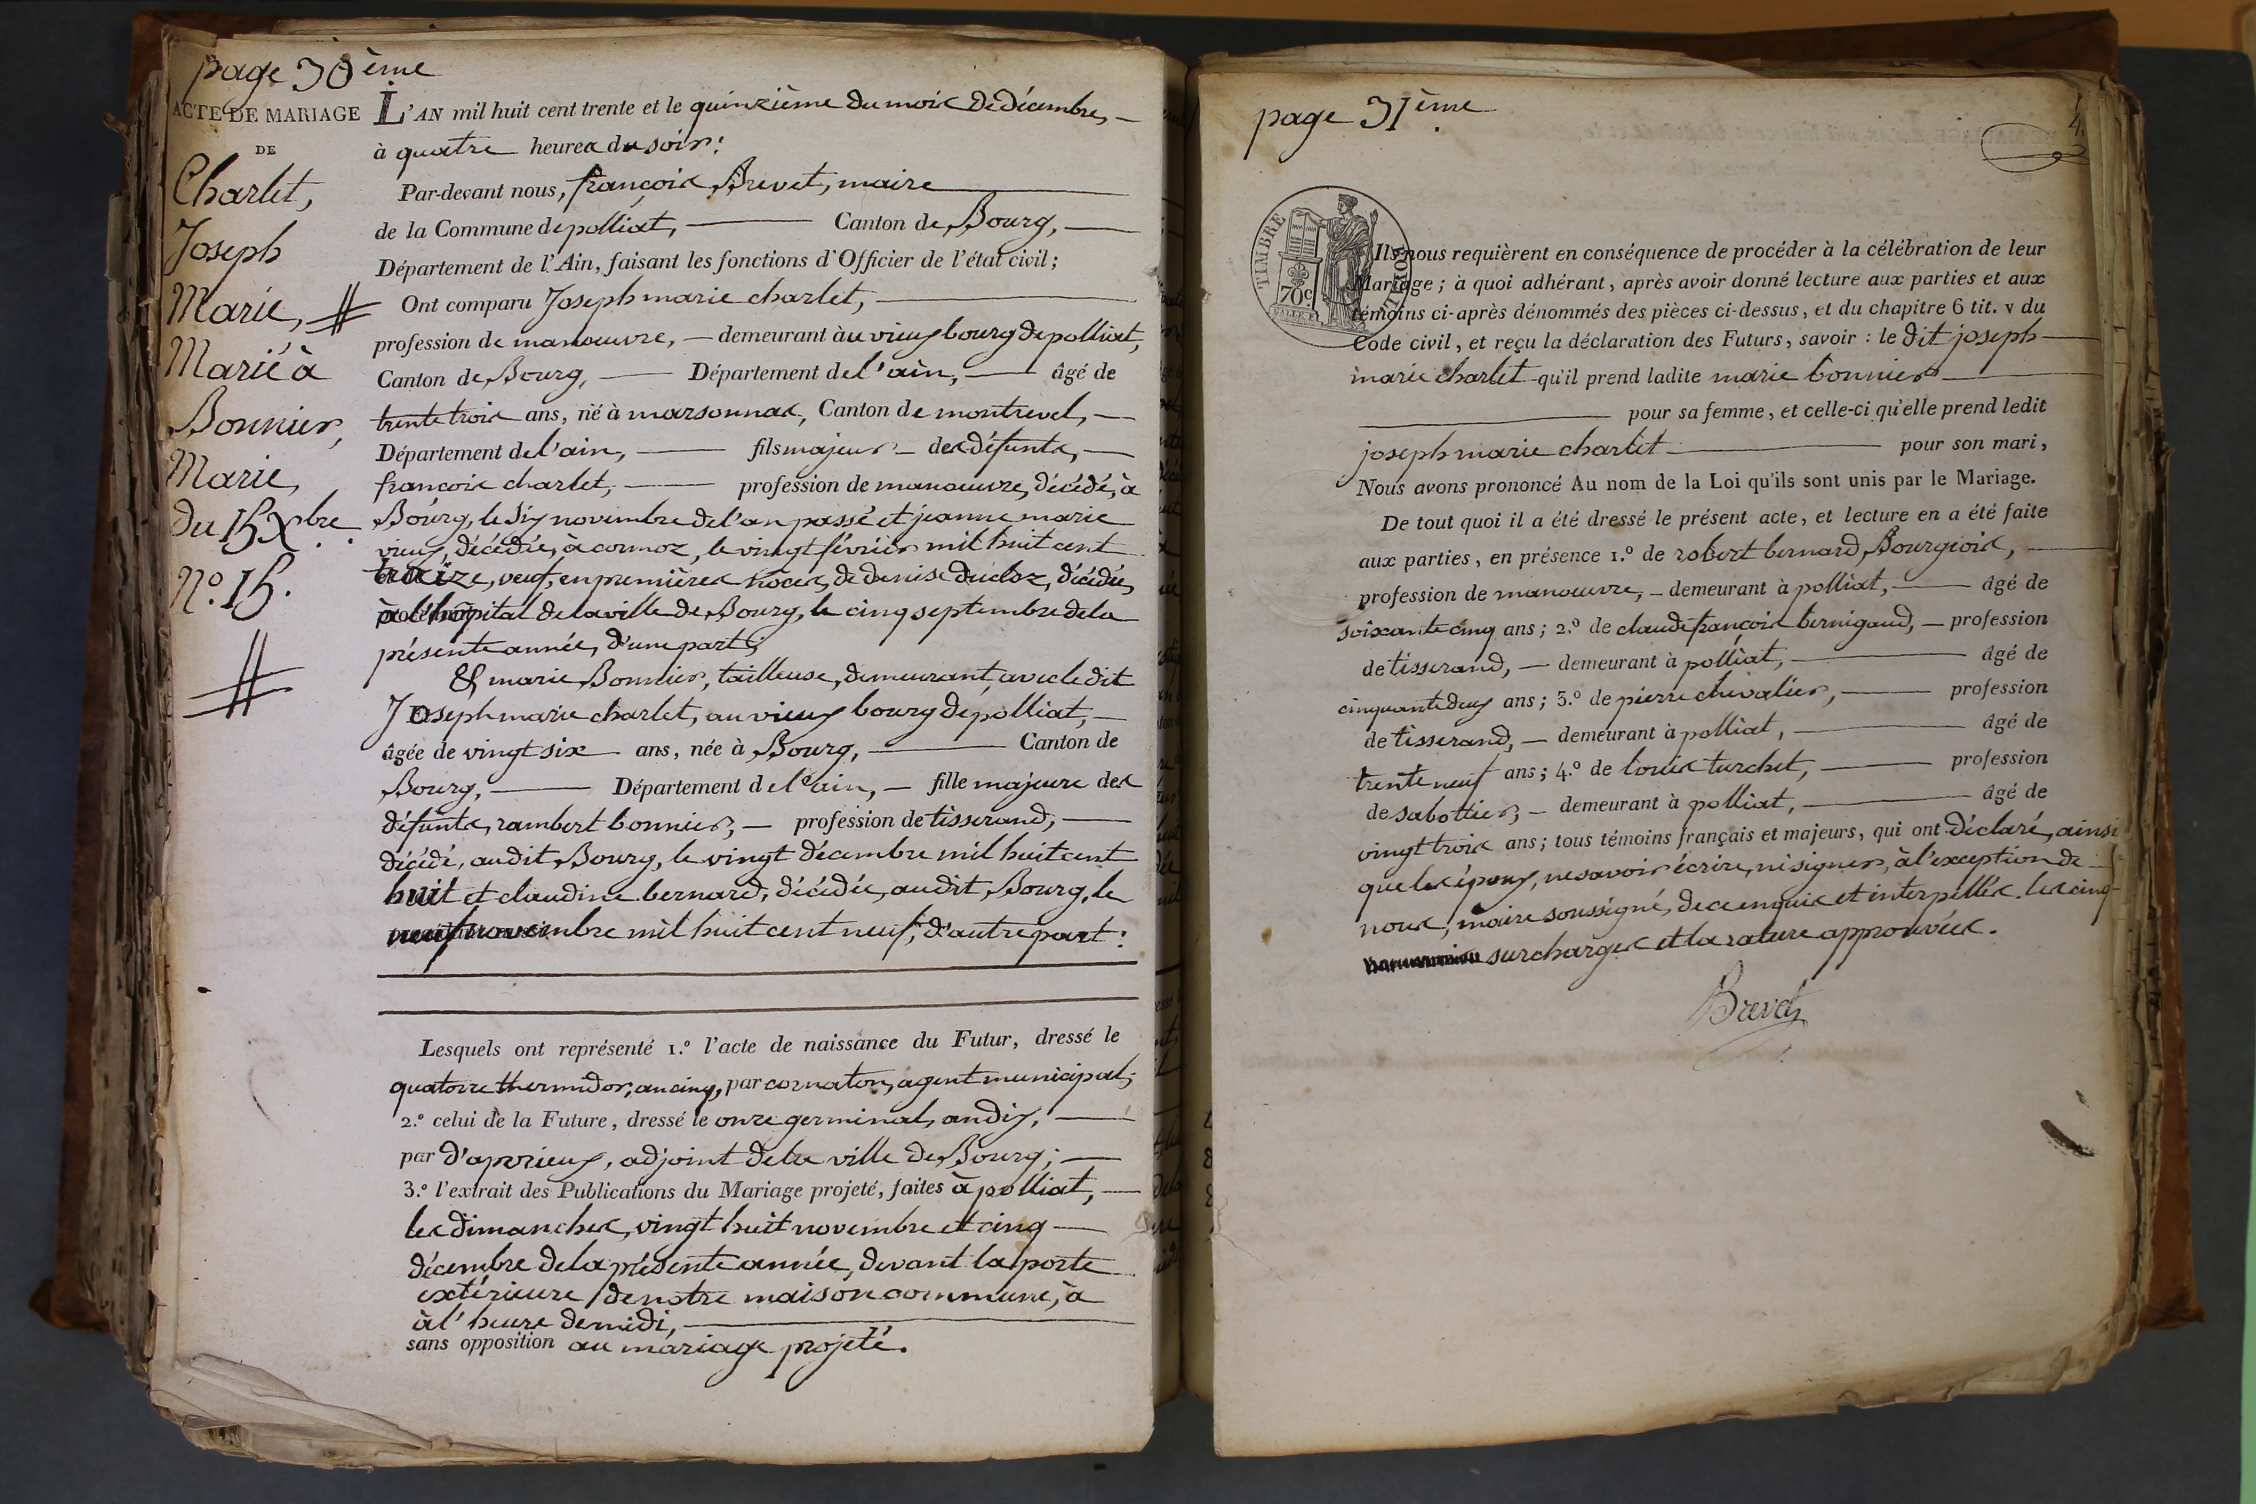 page 30ème
ACTE DE MARIAGE
DE
Charlet,
Joseph
Marie,
Marié à
Bonnier,
Marie,
du 15 Xbre.
N.º 15.
L'AN mil huit cent trente et le quinzième du mois de décembre,
à quatre heures du soir:
Par-devant nous, françois Brevet, maire
de la Commune de polliat, Canton de Bourg,
Département de l'Ain, faisant les fonctions d'Officier de l'état civil;
Ont comparu Joseph marie charlet,
profession de manoeuvre, demeurant àu vieux bourg de polliat,
Canton de Bourg, Département de l'ain, âgé de
trente trois ans, né à marsonnas, Canton de montrevel,
Département de l'ain, fils majeur des défunts,
francois charlet, profession de manoeuvre, décédé, à
Bourg, le dix novembre de l'an passé et jeanne marie
vieux, décédée, à cormoz, le vingt février mil huit cent
treize, veuf, en premières noces, de denise ducloz, décédée,
à l'hôpital de la ville de Bourg, le cinq septembre de la
présente année, d'une part;
& marie Bonnier, tailleuse, demeurant, avec le dit
Joseph marie charlet, au vieux bourg de polliat,
âgée de vingt six ans, née à Bourg, Canton de
Bourg, Département de l'ain, fille majeure des
défunts, rambert bonnier, profession de tisserand,
décédé, audit Bourg, le vingt décembre mil huit cent
huit et claudine bernard, décédée, audit Bourg, le
neuf novembre mil huit cent neuf, d'autre part:
Lesquels ont représenté 1.º l'acte de naissance du Futur, dressé le
quatorze thermidor, an cinq, par cornaton, agent municipal;
2.º celui de la Future, dressé le onze germinal, an dix,
par d'aprieux, adjoint de la ville de Bourg;
3.º l'extrait des Publications du Mariage projeté, faites à polliat,
les dimanches, vingt huit novembre et cinq
décembre de la présente année, devant la porte
extérieure de notre maison commune, à
à l'heure de midi,
sans opposition au mariage projeté.
page 31ème
4.
TIMBRE ROYAL
70c.
Ils nous requièrent en conséquence de procéder à la célébration de leur
Mariage; à quoi adhérant, après avoir donné lecture aux parties et aux
témoins ci-après dénommés des pièces ci-dessus, et du chapitre 6 tit. v du
Code civil, et reçu la déclaration des Futurs, savoir: le dit joseph
marie charlet qu'il prend ladite marie bonnier
pour sa femme, et celle-ci qu'elle prend ledit
joseph marie charlet pour son mari,
Nous avons prononcé Au nom de la Loi qu'ils sont unis par le Mariage.
De tout quoi il a été dressé le présent acte, et lecture en a été faite
aux parties, en présence 1.º de robert bernard, Bourgeois,
profession de manoeuvre, demeurant à polliat, âgé de
soixante cinq ans; 2.º de claude françois bernigaud, profession
de tisserand, demeurant à polliat, âgé de
cinquante deux ans; 3.º de pierre chevalier, profession
de tisserand, demeurant à polliat, âgé de
trente neuf ans; 4.º de louis turchet, profession
de sabottier, demeurant à polliat, âgé de
vingt trois ans; tous témoins français et majeurs, qui ont déclaré, ainsi
que les époux, ne savoir écrire, ni signer, à l'exception de
nous, maire soussigné, de ce enquis et interpellés. les cinq
surcharges et la rature approuvées.
Brevet